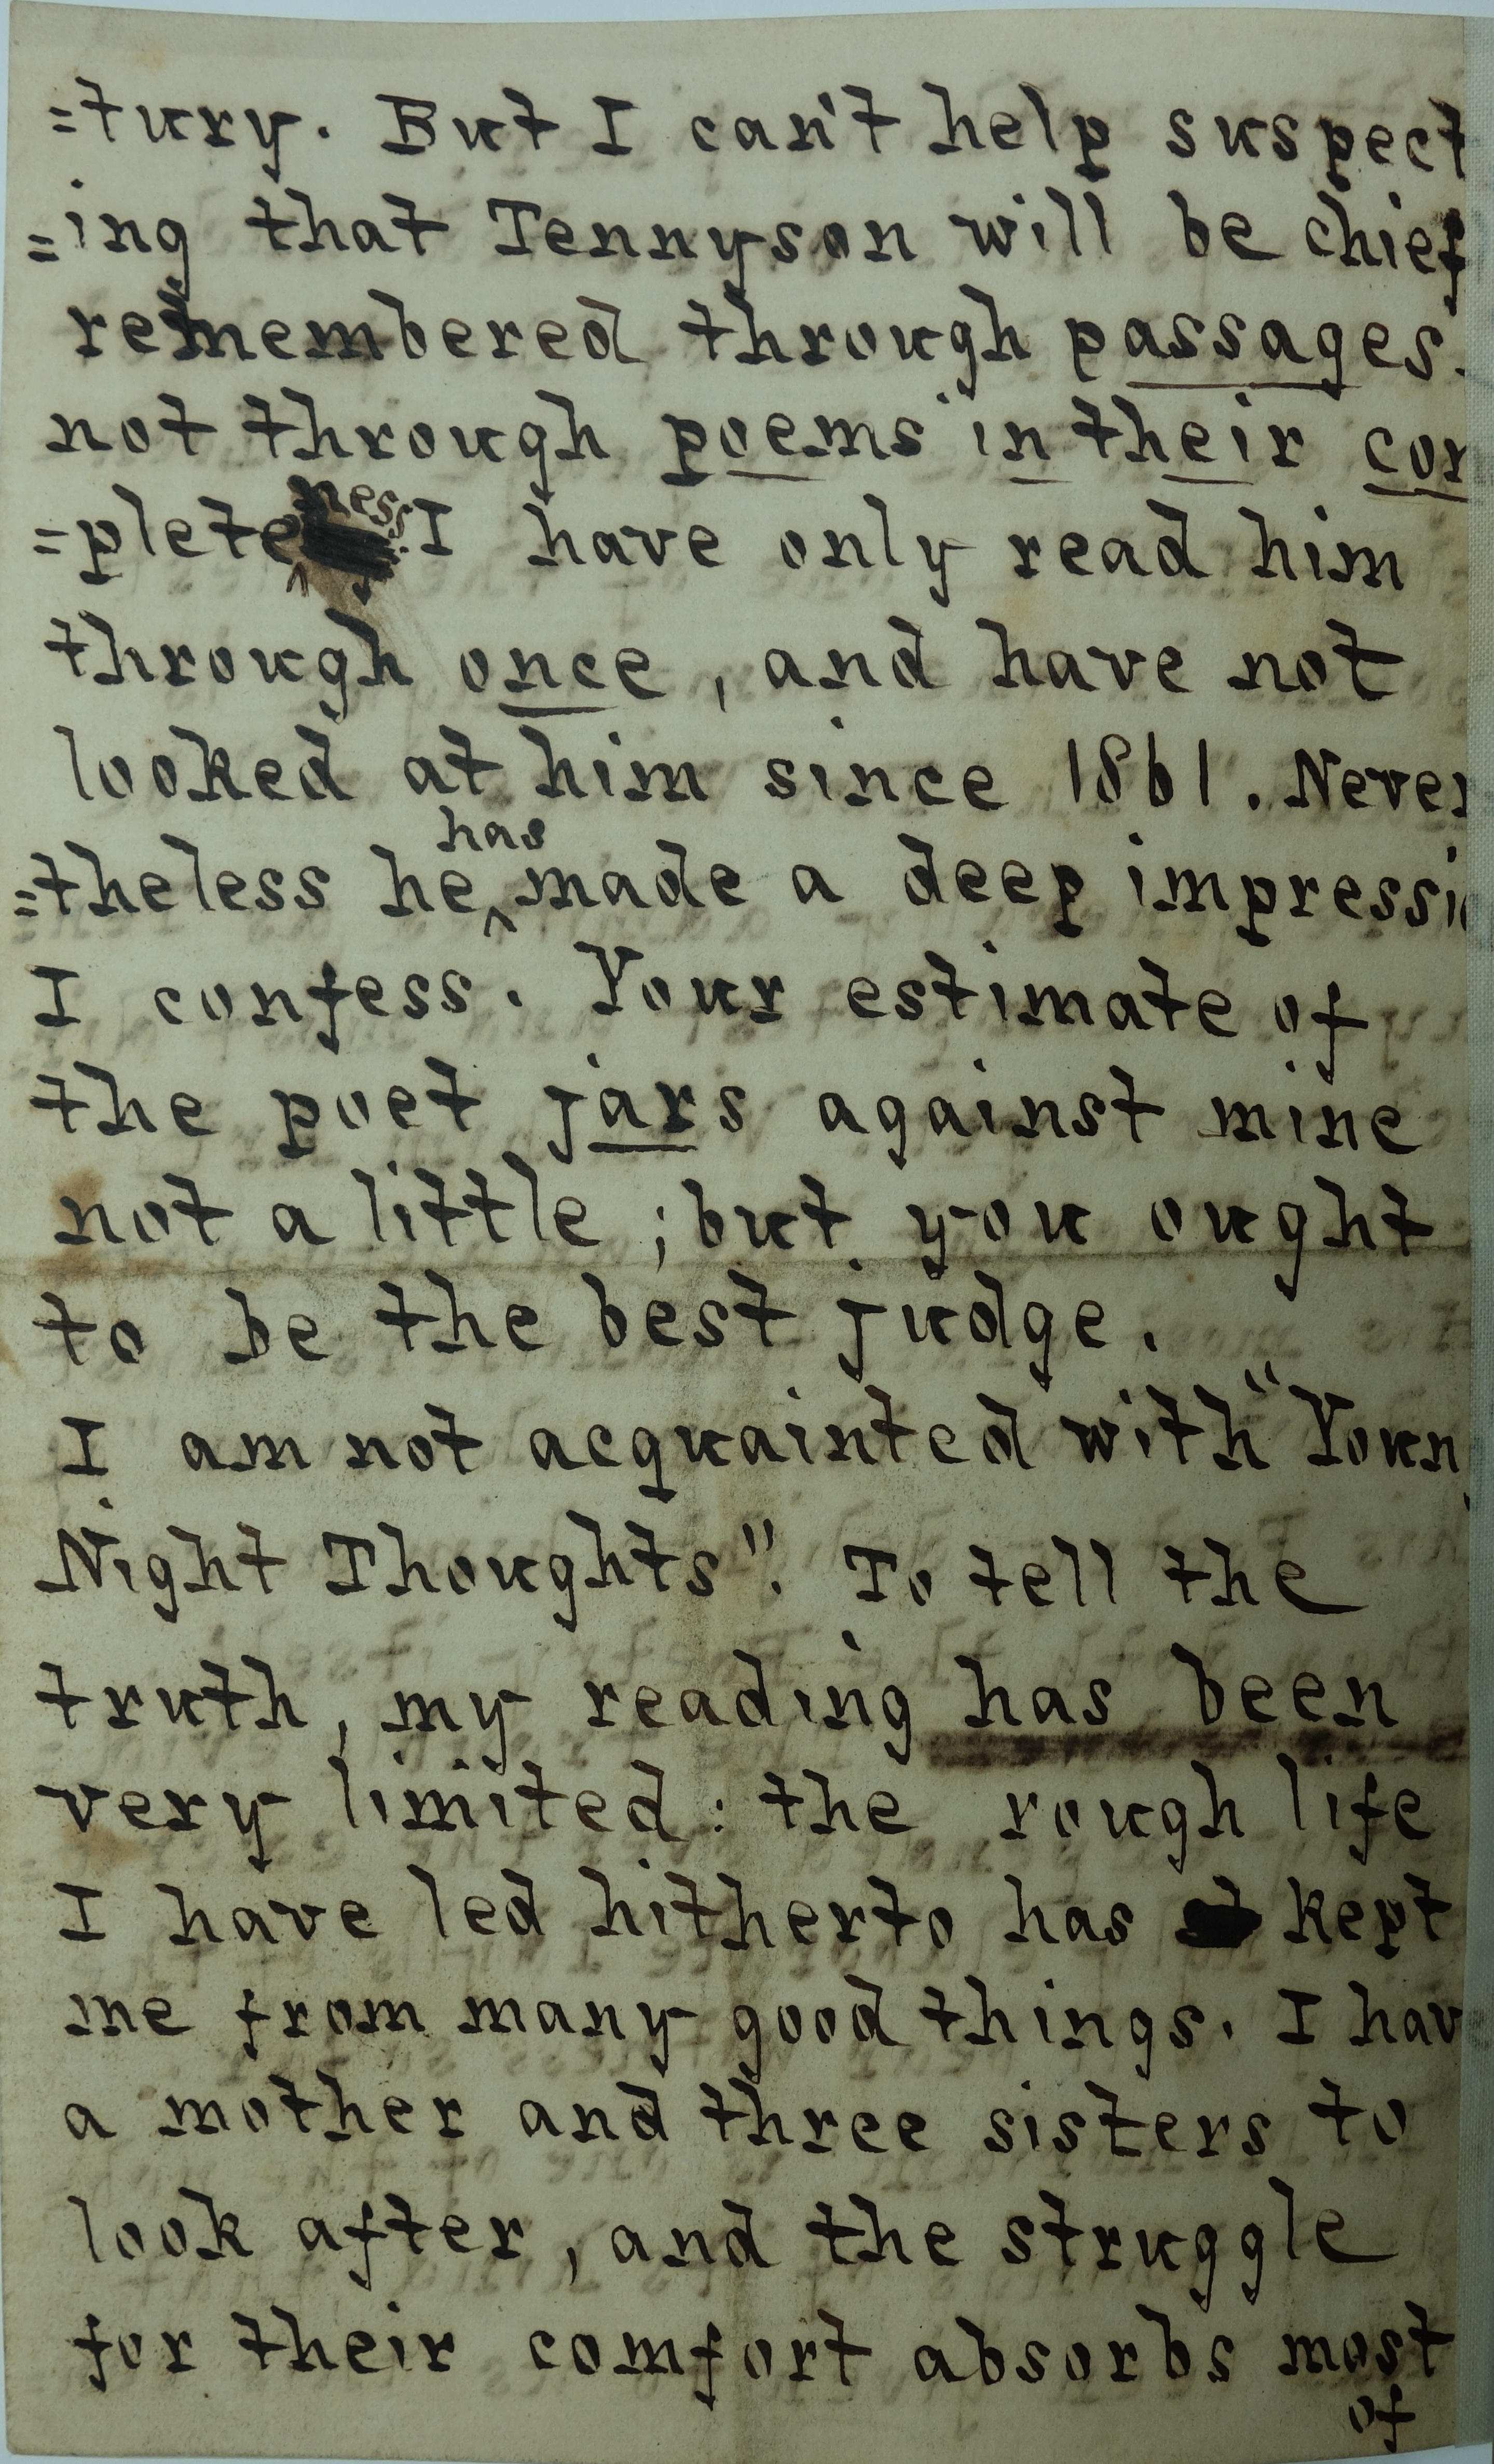 =tury. But I can't help suspect
=ing that Tennyson will be chief
remembered through passages.
not through poems in their com
=pleteness. I have only read him
through once, and have not
looked at him since 1861. Never
=theless he has made a deep impressio
I confess. Your estimate of
the poet jars against mine
not a little; but you ought
to be the best judge.
I am not acquainted with "Young
Night Thoughts". To tell the
truth, my reading has been
very limited: the rough life
I have led hitherto has kept
me from many good things. I hav
a mother and three sisters to
look after, and the struggle
for their comfort absorbs most
of